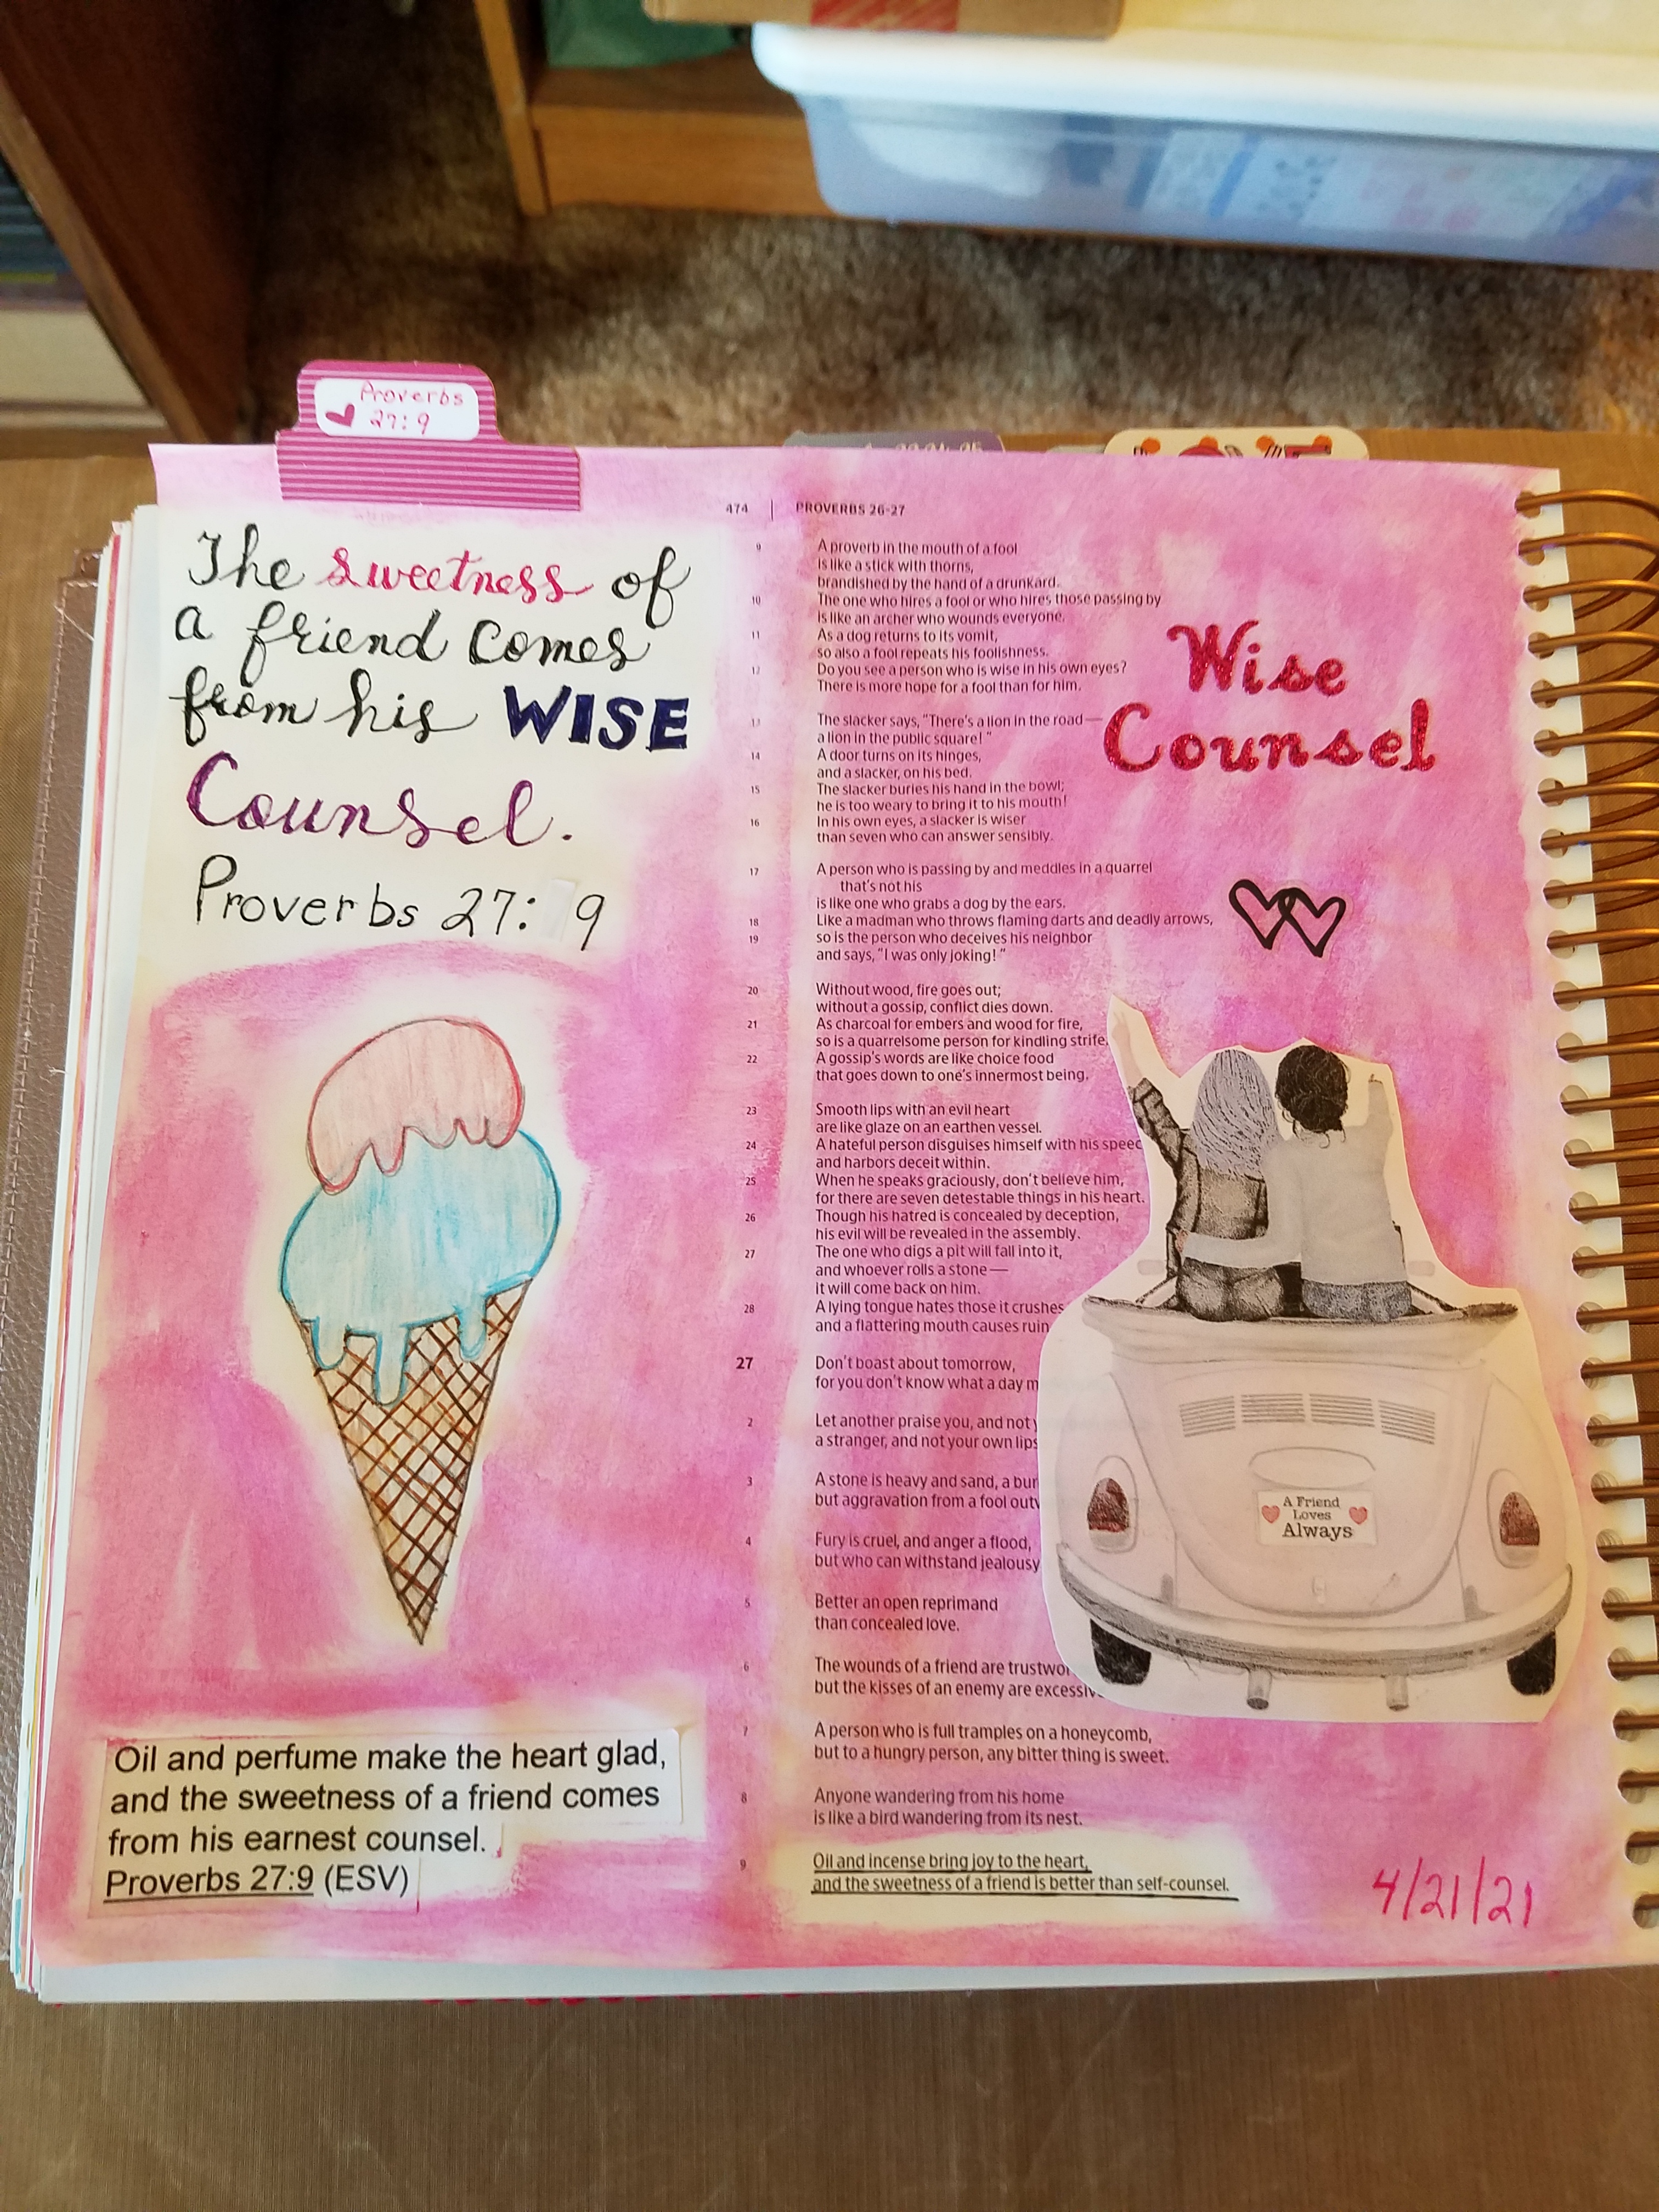 Proverbs
27:9
The sweetness of
a friend comes
from his WISE
Counsel.
Proverbs 27: 9
Oil and perfume make the heart glad,
and the sweetness of a friend comes
from his earnest counsel.
Proverbs 27:9 (ESV)
474 | PROVERBS 26-27
9 A proverb in the mouth of a fool
is like a stick with thorns,
brandished by the hand of a drunkard.
10 The one who hires a fool or who hires those passing by
is like an archer who wounds everyone.
11 As a dog returns to its vomit,
so also a fool repeats his foolishness.
12 Do you see a person who is wise in his own eyes?
There is more hope for a fool than for him.
13 The slacker says, "There's a lion in the road—
a lion in the public square! "
14 A door turns on its hinges,
and a slacker, on his bed.
15 The slacker buries his hand in the bowl;
he is too weary to bring it to his mouth!
16 In his own eyes, a slacker is wiser
than seven who can answer sensibly.
17 A person who is passing by and meddles in a quarrel
that's not his
is like one who grabs a dog by the ears.
18 Like a madman who throws flaming darts and deadly arrows,
19 so is the person who deceives his neighbor
and says, "I was only joking! "
20 Without wood, fire goes out;
without a gossip, conflict dies down.
21 As charcoal for embers and wood for fire,
so is a quarrelsome person for kindling strife.
22 A gossip's words are like choice food
that goes down to one's innermost being.
23 Smooth lips with an evil heart
are like glaze on an earthen vessel.
24 A hateful person disguises himself with his speec
and harbors deceit within.
25 When he speaks graciously, don't believe him,
for there are seven detestable things in his heart.
26 Though his hatred is concealed by deception,
his evil will be revealed in the assembly.
27 The one who digs a pit will fall into it,
and whoever rolls a stone—
it will come back on him.
28 A lying tongue hates those it crushes
and a flattering mouth causes ruin
27 Don't boast about tomorrow,
for you don't know what a day m
2 Let another praise you, and not y
a stranger, and not your own lips
3 A stone is heavy and sand, a bur
but aggravation from a fool outw
4 Fury is cruel, and anger a flood,
but who can withstand jealousy
5 Better an open reprimand
than concealed love.
6 The wounds of a friend are trustwor
but the kisses of an enemy are excessiv
7 A person who is full tramples on a honeycomb,
but to a hungry person, any bitter thing is sweet.
8 Anyone wandering from his home
is like a bird wandering from its nest.
9 Oil and incense bring joy to the heart,
and the sweetness of a friend is better than self-counsel.
Wise
Counsel
A Friend
Loves
Always
4/21/21